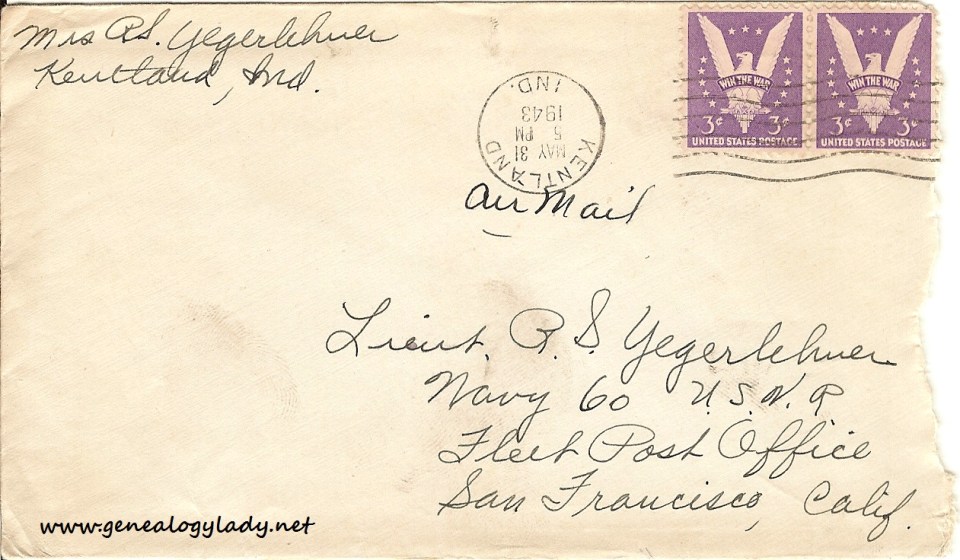 Mrs R.S. Yegerlehner
Kentland, Ind.
KENTLAND
MAY 31
5 PM
1943
IND.
WIN THE WAR
3¢ 3¢
UNITED STATES POSTAGE
WIN THE WAR
3¢ 3¢
UNITED STATES POSTAGE
Air Mail
Lieut. R. S. Yegerlehner
Navy 60 U.S.N.R
Fleet Post Office
San Francisco, Calif.
www.genealogylady.net